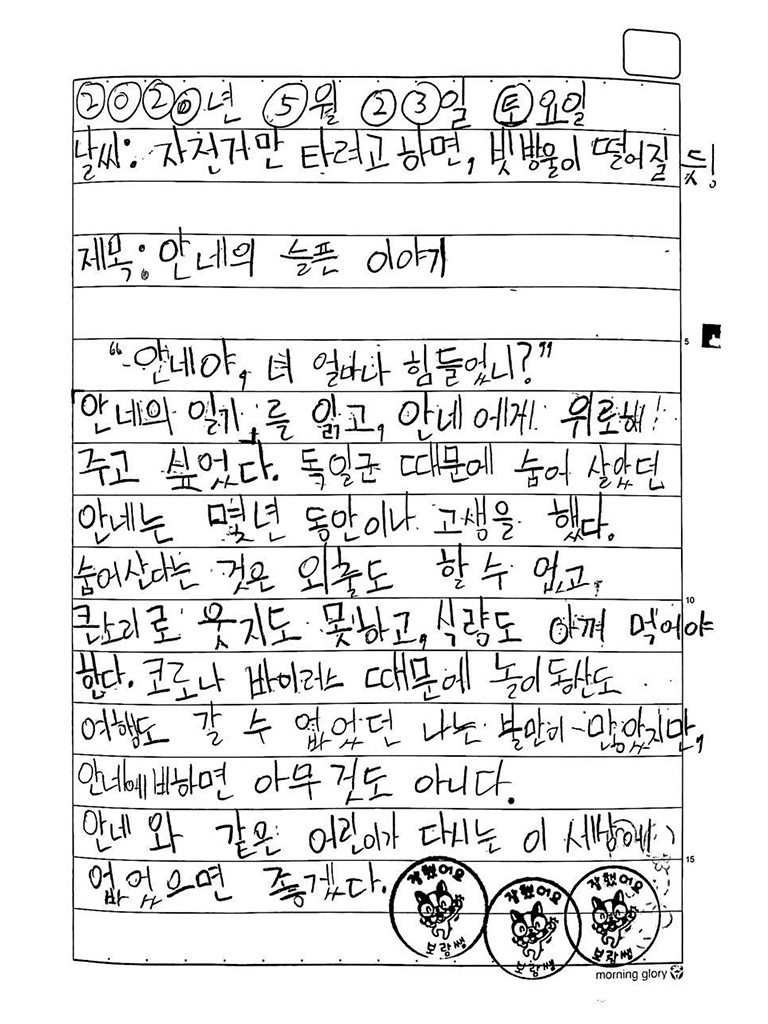 2020년 5월 23일 토요일
날씨: 자전거만 타려고 하면, 빗방울이 떨어질 듯!
제목: 안네의 슬픈 이야기
5
"안네야, 너 얼마나 힘들었니?"
「안네의 일기」를 읽고, 안네에게 위로해
주고 싶었다. 독일군 때문에 숨어 살았던
안네는 몇년 동안이나 고생을 했다.
숨어산다는 것은 외출도 할 수 없고,
10
큰소리로 웃지도 못하고, 식량도 아껴 먹어야
한다. 코로나 바이러스 때문에 놀이동산도
여행도 갈 수 없었던 나는 불만이 많았지만,
안네에 비하면 아무 것도 아니다.
안네 와 같은 어린이가 다시는 이 세상에
15
없었으면 좋겠다.
잘했어요 보람쌤
잘했어요 보람쌤
잘했어요 보람쌤
morning glory